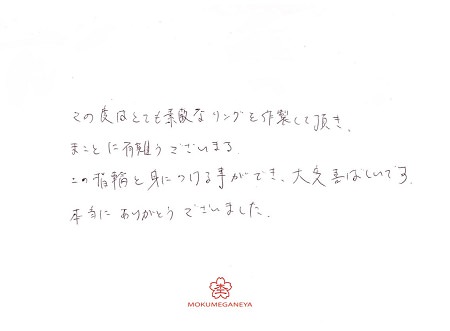 この度はとても素敵なリングを作製して頂き、
まことに有難うございます。
この指輪を身につける事ができ、大変喜ばしいです。
本当にありがとうございました。
MOKUMEGANEYA